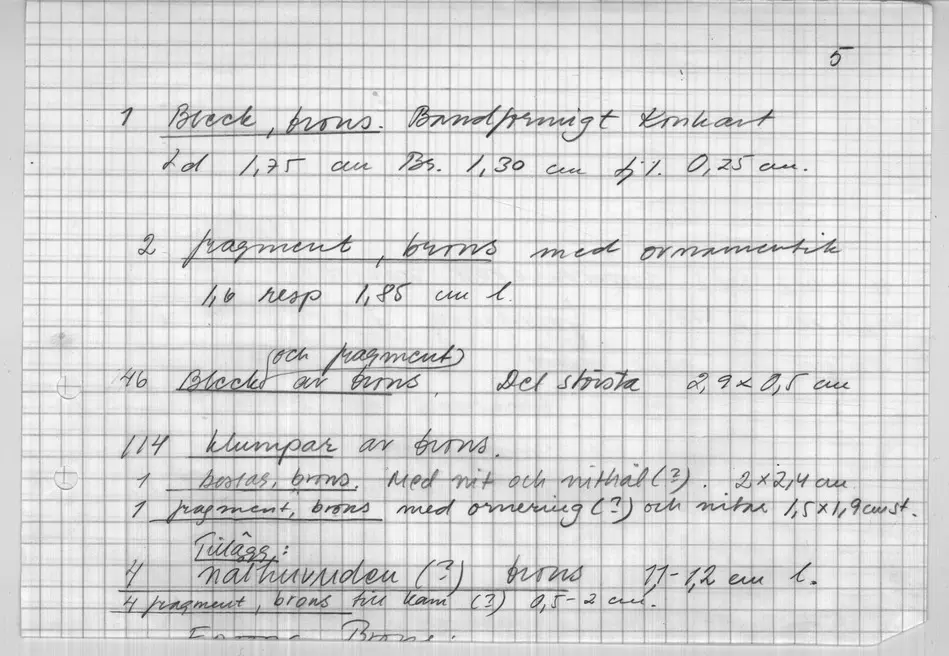 5
1 Bleck, brons. Bandformigt Konkavt
Ld 1,75 cm Br. 1,30 cm tjl. 0,25 cm.
2 fragment, brons med ornamentik
1,6 resp 1,85 cm l.
(och fragment)
46 Bleck av brons, Det största 2,9 x 0,5 cm
114 klumpar av brons.
1 beslag, brons. Med nit och nithål (?). 2 x 2,4 cm
1 fragment, brons med ornering (?) och nitar 1,5 x 1,9 cm st.
Tillägg:
4 nålhuvuden (?) brons 1,1-1,2 cm l.
4 fragment, brons till kam (?) 0,5-2 cm.
Brons: